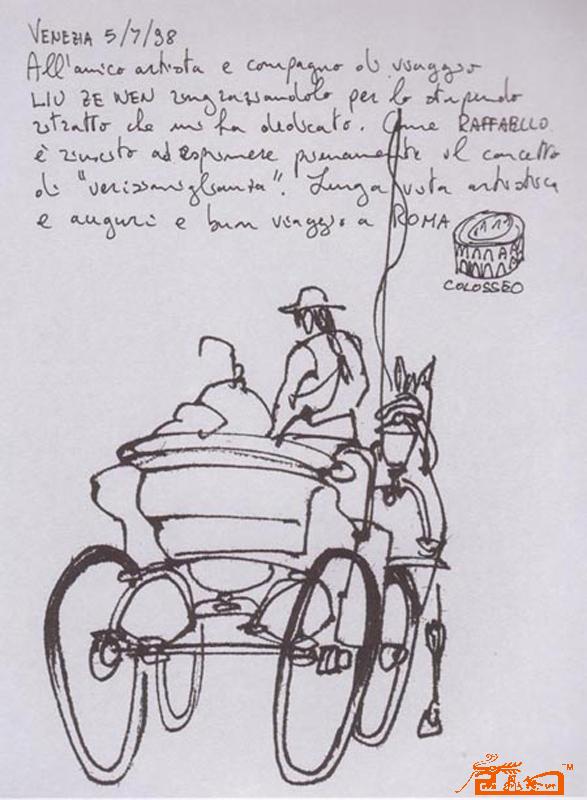 VENEZIA 5/7/98
All'amico artista e compagno di viaggio
LIU ZE WEN ringraziandolo per lo stupendo
ritratto che mi ha dedicato. Come RAFFAELLO
è riuscito ad esprimere pienamente il concetto
di "verissimiglianza". Lunga vita artistica
e auguri e buon viaggio a ROMA
COLOSSEO